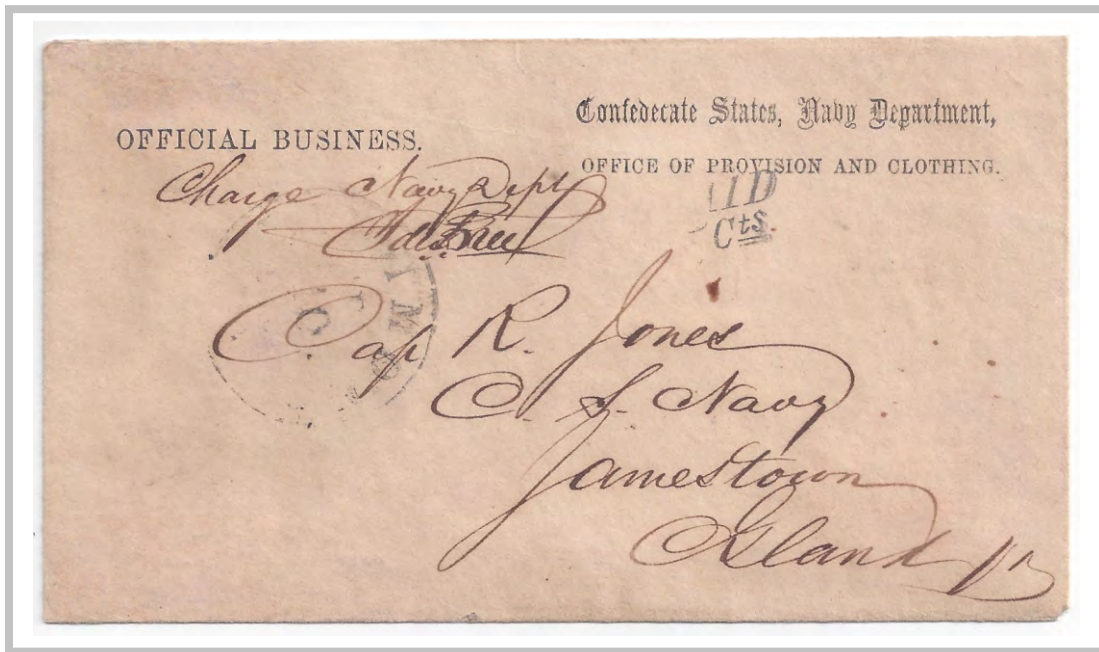 OFFICIAL BUSINESS.
Confederate States, Navy Department,
OFFICE OF PROVISION AND CLOTHING.
Charge Navy Dept
AID
Cts.
Cap R. Jones
C. S. Navy
Jamestown
Island Va